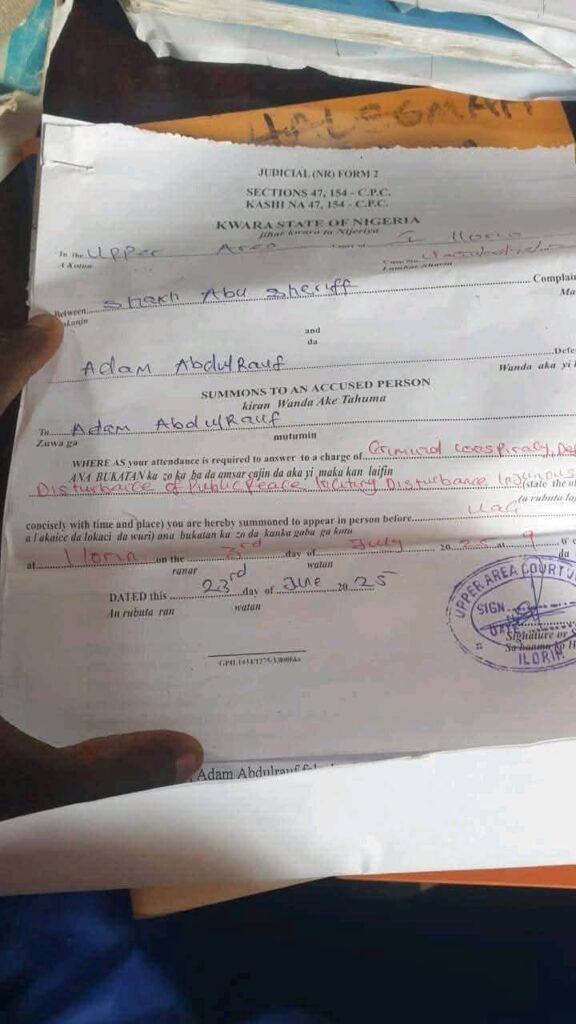 HALSGMAH
JUDICIAL (NR) FORM 2
SECTIONS 47, 154 - C.P.C.
KASHI NA 47, 154 - C.P.C.
KWARA STATE OF NIGERIA
jihar kwara ta Nijeriya
In the Upper Area Court of I Ilorin
A Kotun
Case No.
Lambar Sharia
Between Shekh Abu Sheriff Complai
Ma
and
da
Adam AbdulRauf Defe
Wanda aka yi
SUMMONS TO AN ACCUSED PERSON
kiran Wanda Ake Tahuma
To Adam AbdulRauf
Zuwa ga mutumin
WHERE AS your attendance is required to answer to a charge of Criminal conspiracy, De
ANA BUKATAN ka zo ka ba da amsar cajin da aka yi maka kan laifin
Disturbance of Public Peace, Inciting Disturbance, Injurious (state the o
(a rubuta laj
concisely with time and place) you are hereby summoned to appear in person before UAC I
a lakaice da lokaci da wuri) ana bukatan ka zo da kanka gabu ga kotu
at Ilorin on the 3rd day of July 20 25 at 9
ranar watan da
DATED this 23rd day of June 20 25
An rubuta ran watan
UPPER AREA COURT
SIGN
DATE
Signature or
ILORIN
Adam Abdulrauf